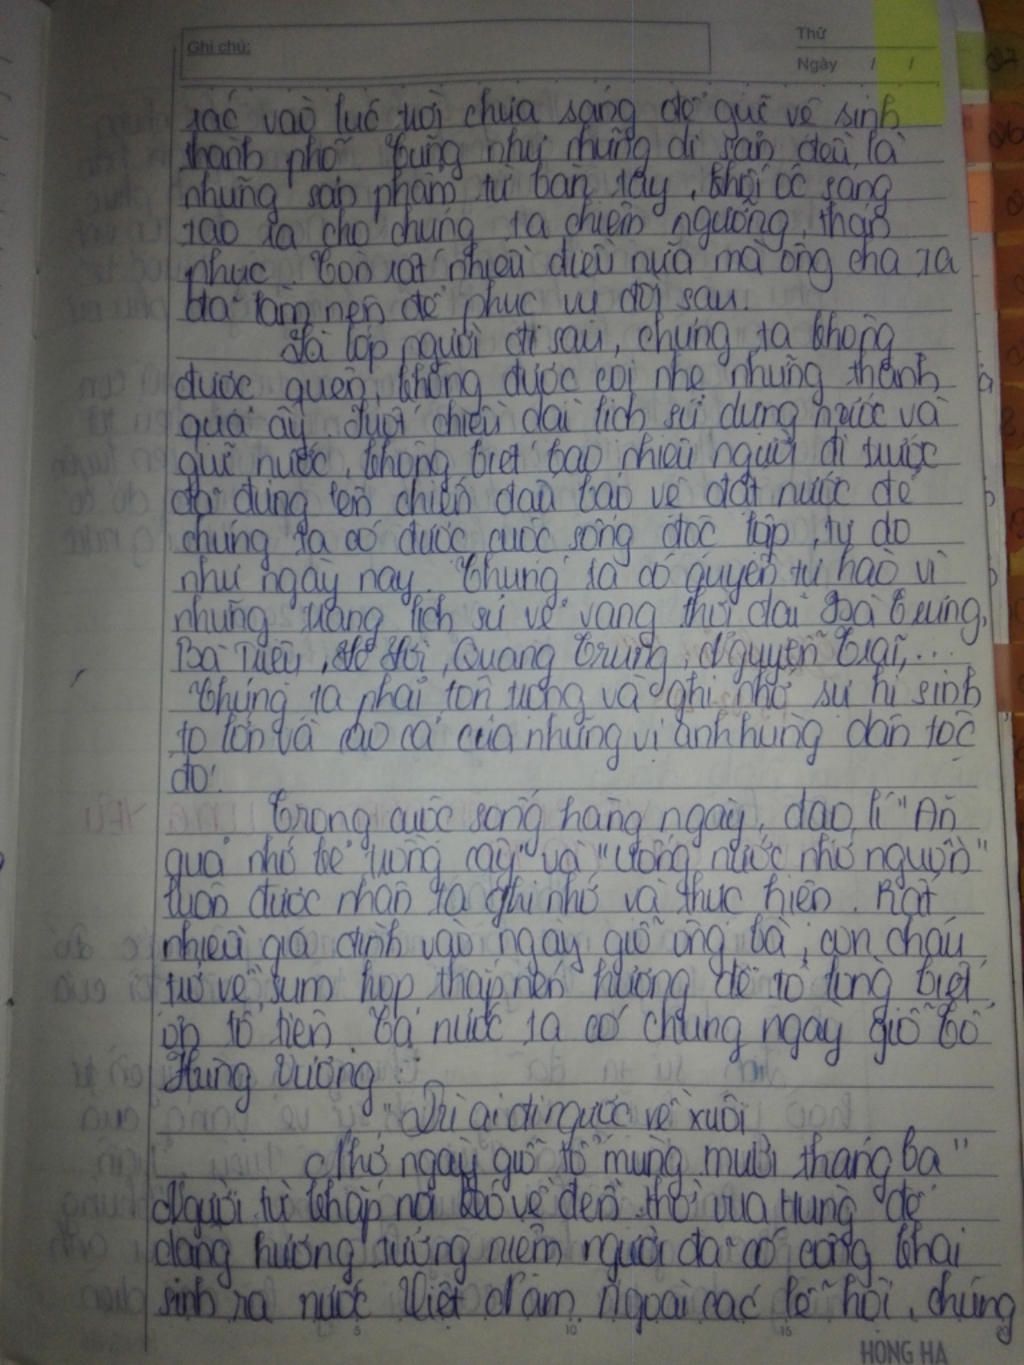 Ghi chú:
Thứ
Ngày / /
rác vào lúc trời chưa sáng để giữ vệ sinh
thành phố. Cũng như những di sản đều là
những sản phẩm từ bàn tay, khối óc sáng
tạo ra cho chúng ta chiêm ngưỡng, thán
phục. Còn rất nhiều điều nữa mà ông cha ta
đã làm nên để phục vụ đời sau.
Là lớp người đi sau, chúng ta không
được quên, không được coi nhẹ những thành
quả ấy. Suốt chiều dài lịch sử dựng nước và
giữ nước, không biết bao nhiêu người đi trước
đã đứng lên chiến đấu bảo vệ đất nước để
chúng ta có được cuộc sống độc lập, tự do
như ngày nay. Chúng ta có quyền tự hào vì
những trang lịch sử vẻ vang thời đại Bà Trưng,
Bà Triệu, Lê Lợi, Quang Trung, Nguyễn Trãi,...
Chúng ta phải tôn trọng và ghi nhớ sự hi sinh
to lớn và cao cả của những vị anh hùng dân tộc
đó!
Trong cuộc sống hàng ngày, đạo lí "Ăn
quả nhớ kẻ trồng cây" và "Uống nước nhớ nguồn"
luôn được nhân ta ghi nhớ và thực hiện. Rất
nhiều gia đình vào ngày giỗ ông bà, con cháu
trở về sum họp thắp nén hương để tỏ lòng biết
ơn tổ tiên. Cả nước ta có chung ngày giỗ tổ
Hùng Vương:
"Dù ai đi ngược về xuôi
Nhớ ngày giỗ tổ mùng mười tháng ba"
Người từ khắp nơi đổ về đền thờ vua Hùng để
dâng hương tưởng niệm người đã có công khai
sinh ra nước Việt Nam. Ngoài các lễ hội, chúng
5 10 15
HỒNG HÀ